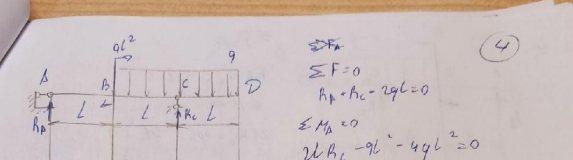 4
qL²
q
A
B
C
D
R_A
R_C
L
L
L
ΣF_A
ΣF=0
R_A+R_C-2qL=0
ΣM_A=0
2L R_C -qL² -4qL²=0